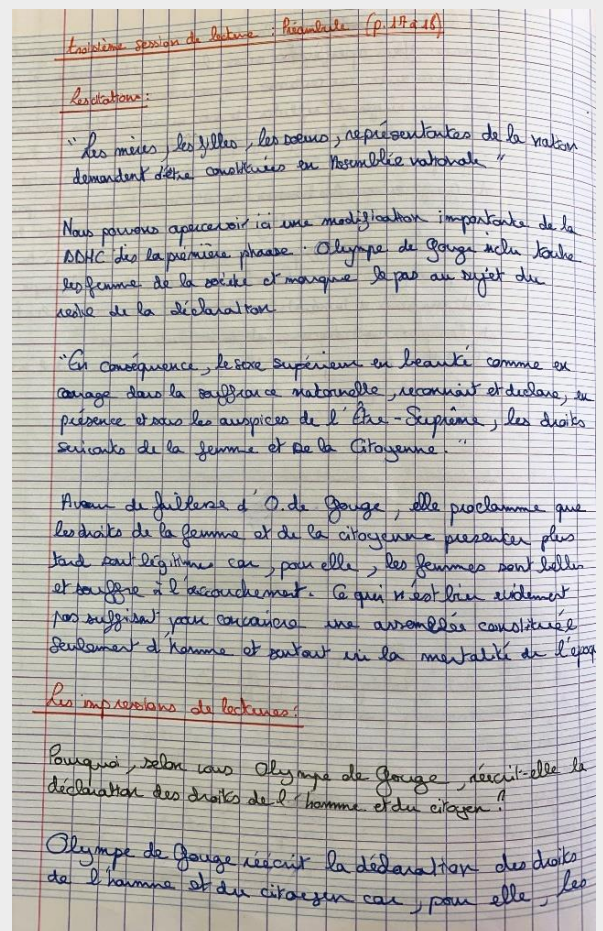 troisième session de lecture : Préambule (p. 17 à 18)
Les citations :
"Les mères, les filles, les soeurs, représentantes de la nation
demandent d'être constituées en Assemblée nationale"
Nous pouvons apercevoir ici une modification importante de la
DDHC dès la première phrase. Olympe de Gouge inclu toute
les femme de la société et marque le pas au sujet du
reste de la déclaration
"En conséquence, le sexe supérieur en beauté comme en
courage dans la souffrance maternelle, reconnait et declare, en
présence et sous les auspices de l'Être-Suprême, les droits
suivants de la femme et De la Citoyenne."
de O. de Gouge, elle proclamme que
les droits de la femme et de la citoyenne presenter plus
tard sont légitimes car, pour elle, les femmes sont belles
et souffre à l'accouchement. Ce qui n'est bien evidement
pas suffisant pour convaincre une assemblée constitué
seulement d'homme et surtout vu la mentalité de l'époq
Les impressions de lectures :
Pourquoi, selon vous Olympe de Gouge, réécrit-elle la
déclaration des droits de l'homme et du citoyen ?
Olympe de Gouge réécrit la déclaration des droits
de l'homme et du citoyen car, pour elle, les